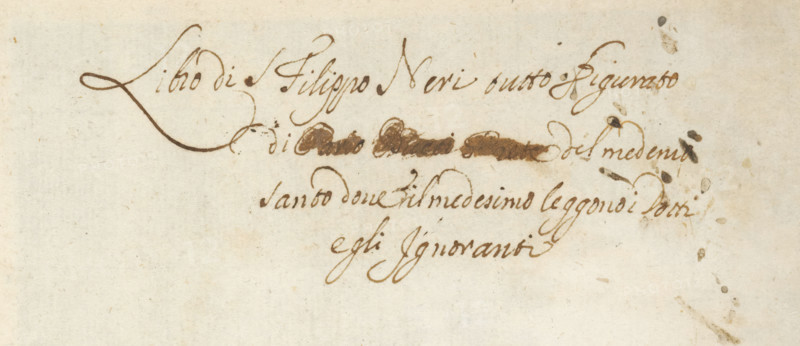 Libro di S Filippo Neri tutto Figurato
E di del medemo
santo dove il medesimo leggono i Dotti
e gli Jgnoranti